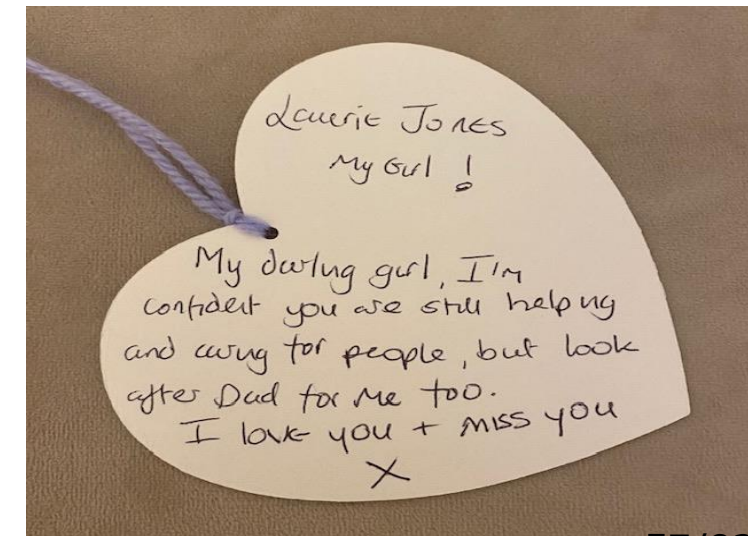 Laurie Jones
My Girl !
My darling girl, I'm
confident you are still helping
and caring for people, but look
after Dad for me too.
I love you + miss you
X